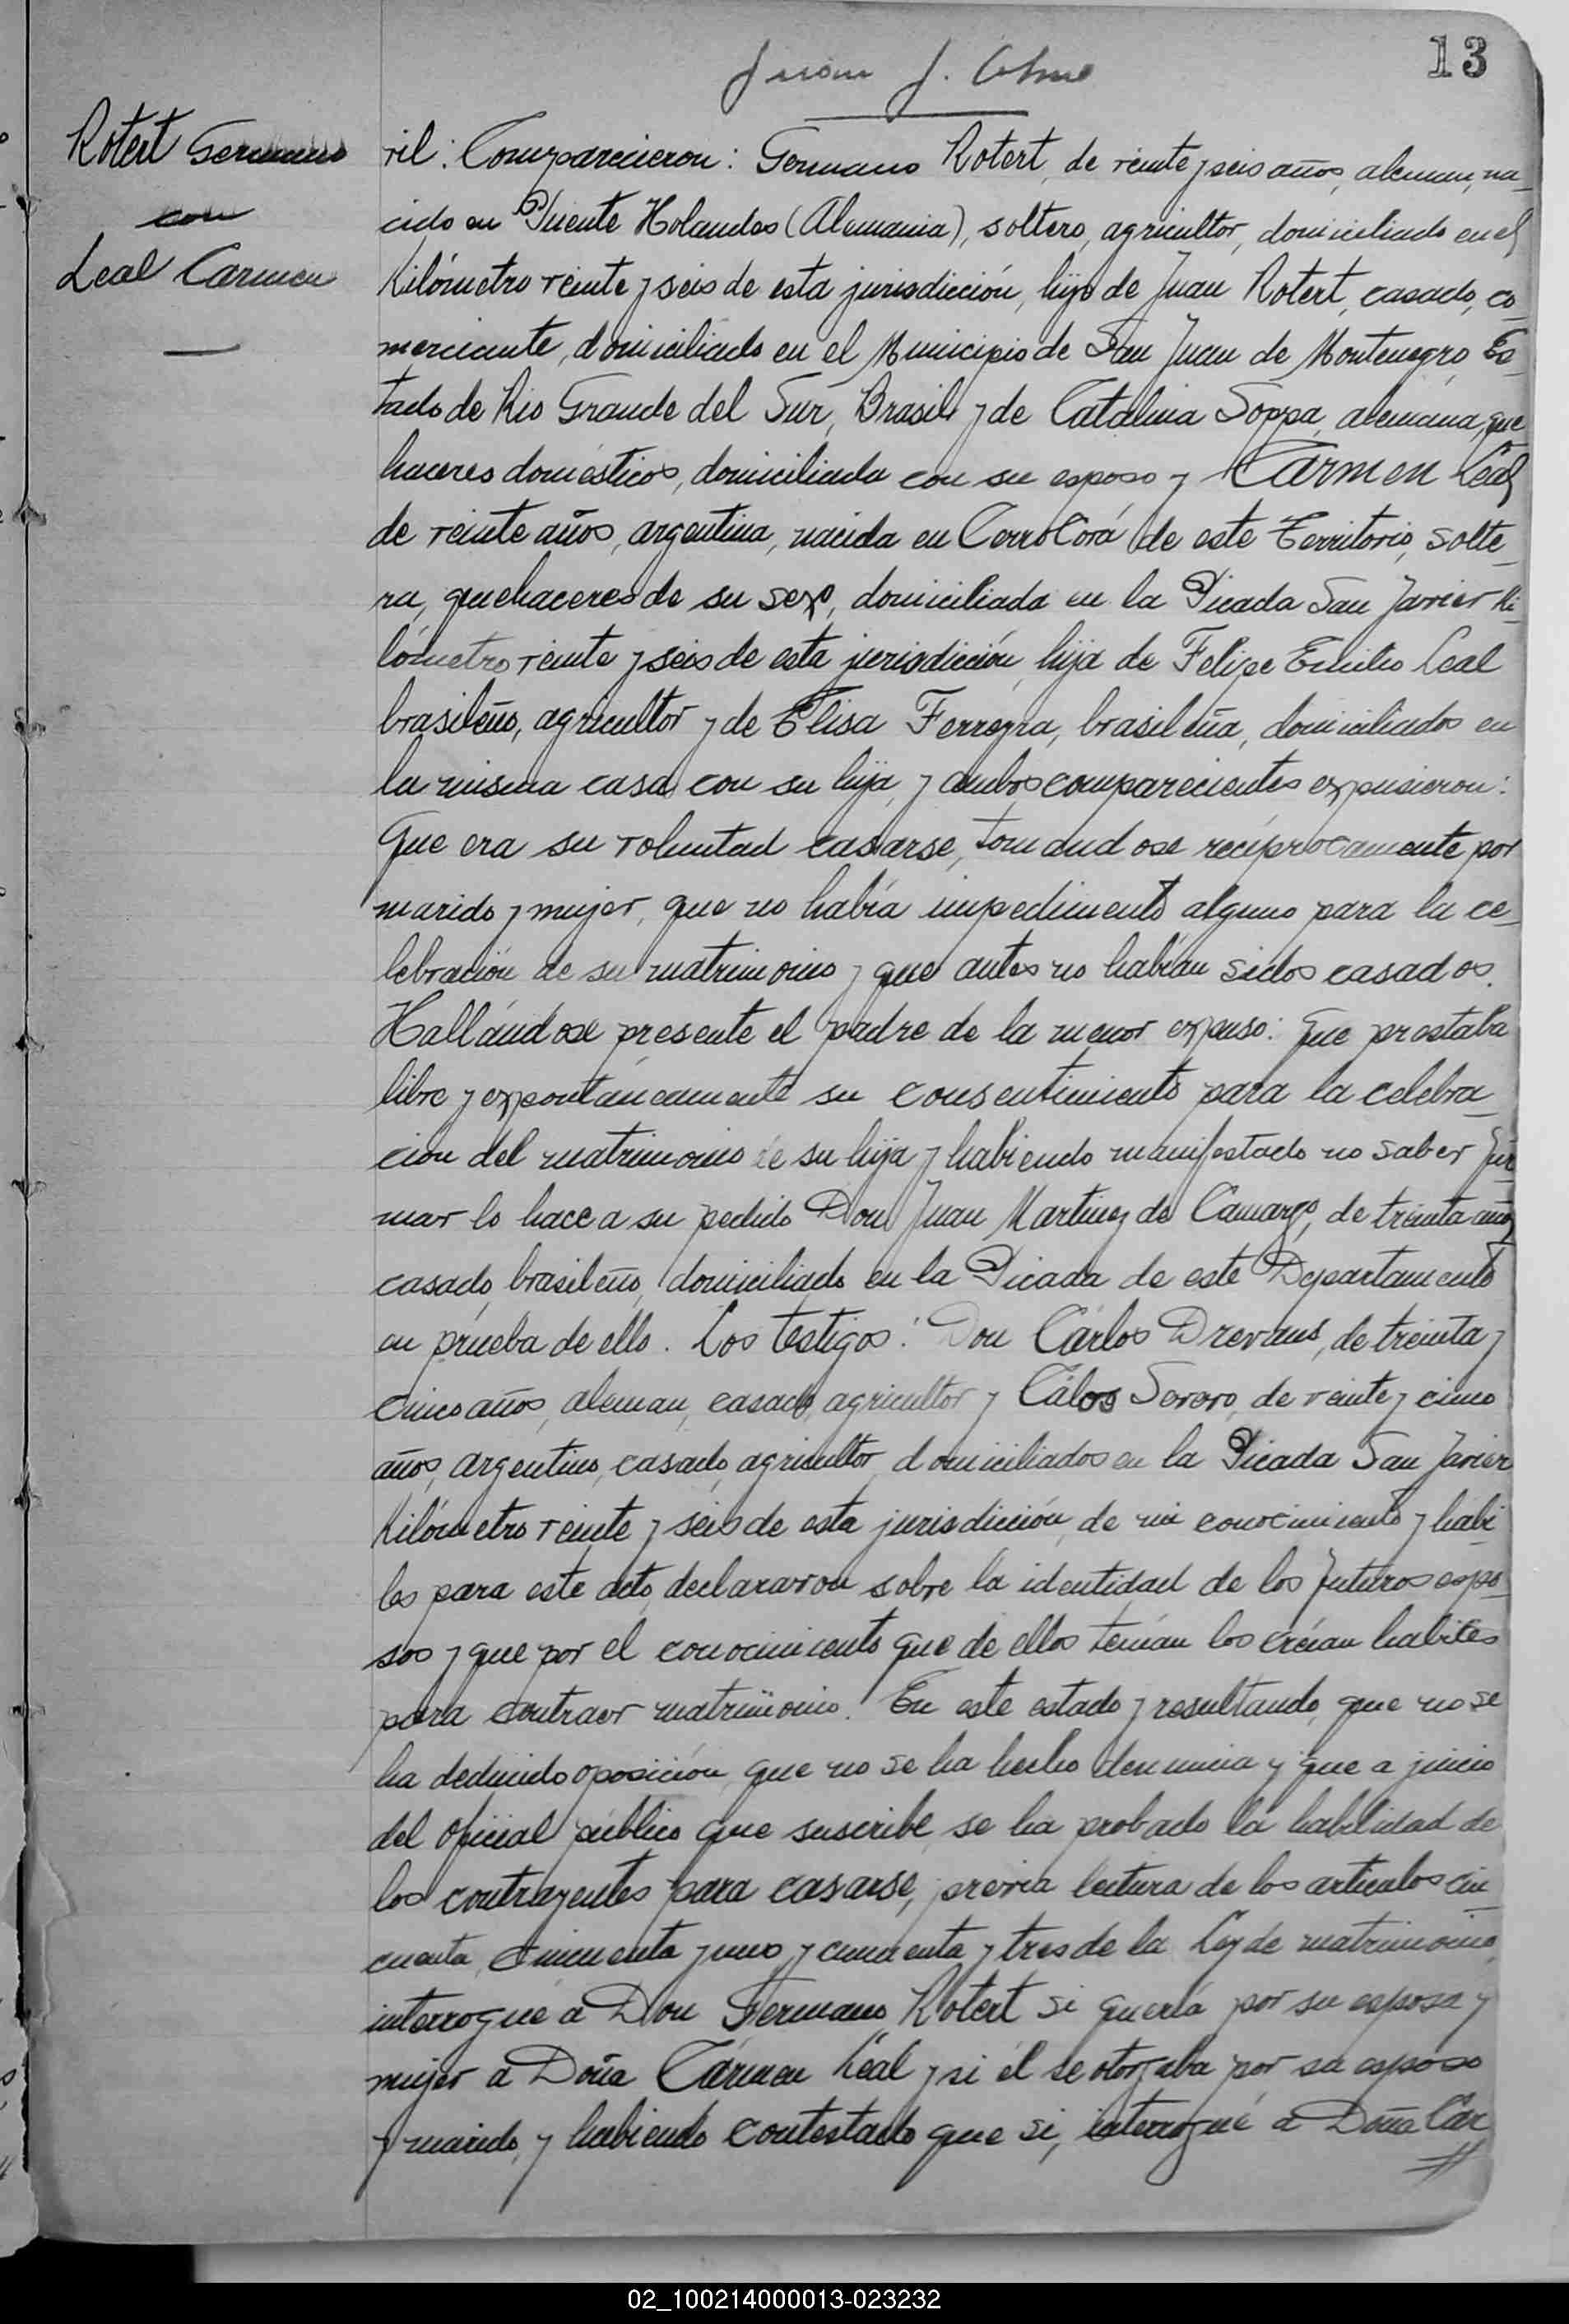 13
Juan J.
Rotert Germano
con
Leal Carmen
ril: Comparecieron: Germano Rotert, de veinte y seis años, aleman, na-
cido en Puente Holandes (Alemania), soltero, agricultor, domiciliado en el
Kilómetro veinte y seis de esta jurisdicción, hijo de Juan Rotert, casado, co-
merciante, domiciliado en el Municipio de San Juan de Montenegro Es-
tado de Rio Grande del Sur, Brasil y de Catalina Soppa, alemana, que
haceres domésticos, domiciliada con su esposo y Carmen Leal
de veinte años, argentina, nacida en Cerro Corá de este Territorio, solte-
ra, quehaceres de su sexo, domiciliada en la Picada San Javier Ki-
lómetro veinte y seis de esta jurisdicción, hija de Felipe Emilio Leal
brasileño, agricultor y de Elisa Ferreyra, brasileña, domiciliados en
la misma casa con su hija, y ambos comparecientes expusieron:
Que era su voluntad casarse, tomandose recíprocamente por
marido y mujer, que no había impedimento alguno para la ce-
lebración de su matrimonio y que antes no habían sidos casados.
Hallándose presente el padre de la menor expuso: Que prestaba
libre y expontáneamente su consentimiento para la celebra-
cion del matrimonio de su hija y habiendo manifestado no saber fir-
mar lo hace a su pedido Don Juan Martinez de Camargo, de treinta años
casado, brasileño, domiciliado en la Picada de este Departamento
en prueba de ello. Los testigos: Don Cárlos Drevans, de treinta y
cinco años, aleman, casado, agricultor y Cálos Sororo, de veinte y cinco
años, argentino, casado, agricultor, domiciliados en la Picada San Javier
Kilómetro veinte y seis de esta jurisdicción, de mi conocimiento y habi-
les para este acto, declararon sobre la identidad de los futuros espo-
sos y que por el conocimiento que de ellos tenían los creían habiles
para contraer matrimonio. En este estado y resultando, que no se
ha deducido oposición, que no se ha hecho denuncia y que a juicio
del oficial público que suscribe, se ha probado la habilidad de
los contrayentes para casarse, previa lectura de los articulos cin-
cuenta, cincuenta y uno y cincuenta y tres de la Ley de matrimonio
interrogué a Don Germano Rotert si quería por su esposa y
mujer a Doña Cármen Leal y si él se otorgaba por su esposo
y marido, y habiendo contestado que si, interrogué a Doña Cár
02_100214000013-023232